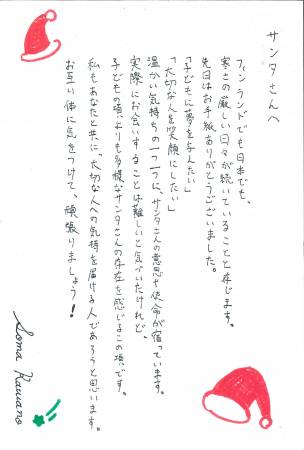 サンタさんへ
フィンランドでも日本でも、
寒さの厳しい日々が続いていることと存じます。
先日はお手紙ありがとうございました。
「子どもに夢を与えたい」
「大切な人を笑顔にしたい」
温かい気持ちの一つ一つに、サンタさんの意思や使命が宿っています。
実際にお会いすることは難しいと気づいたけれど、
子どもの頃よりも多様なサンタさんの存在を感じるこの頃です。
私もあなたと共に、大切な人への気持を届ける人であろうと思います。
お互い体に気をつけて、頑張りましょう！
Soma Kawano